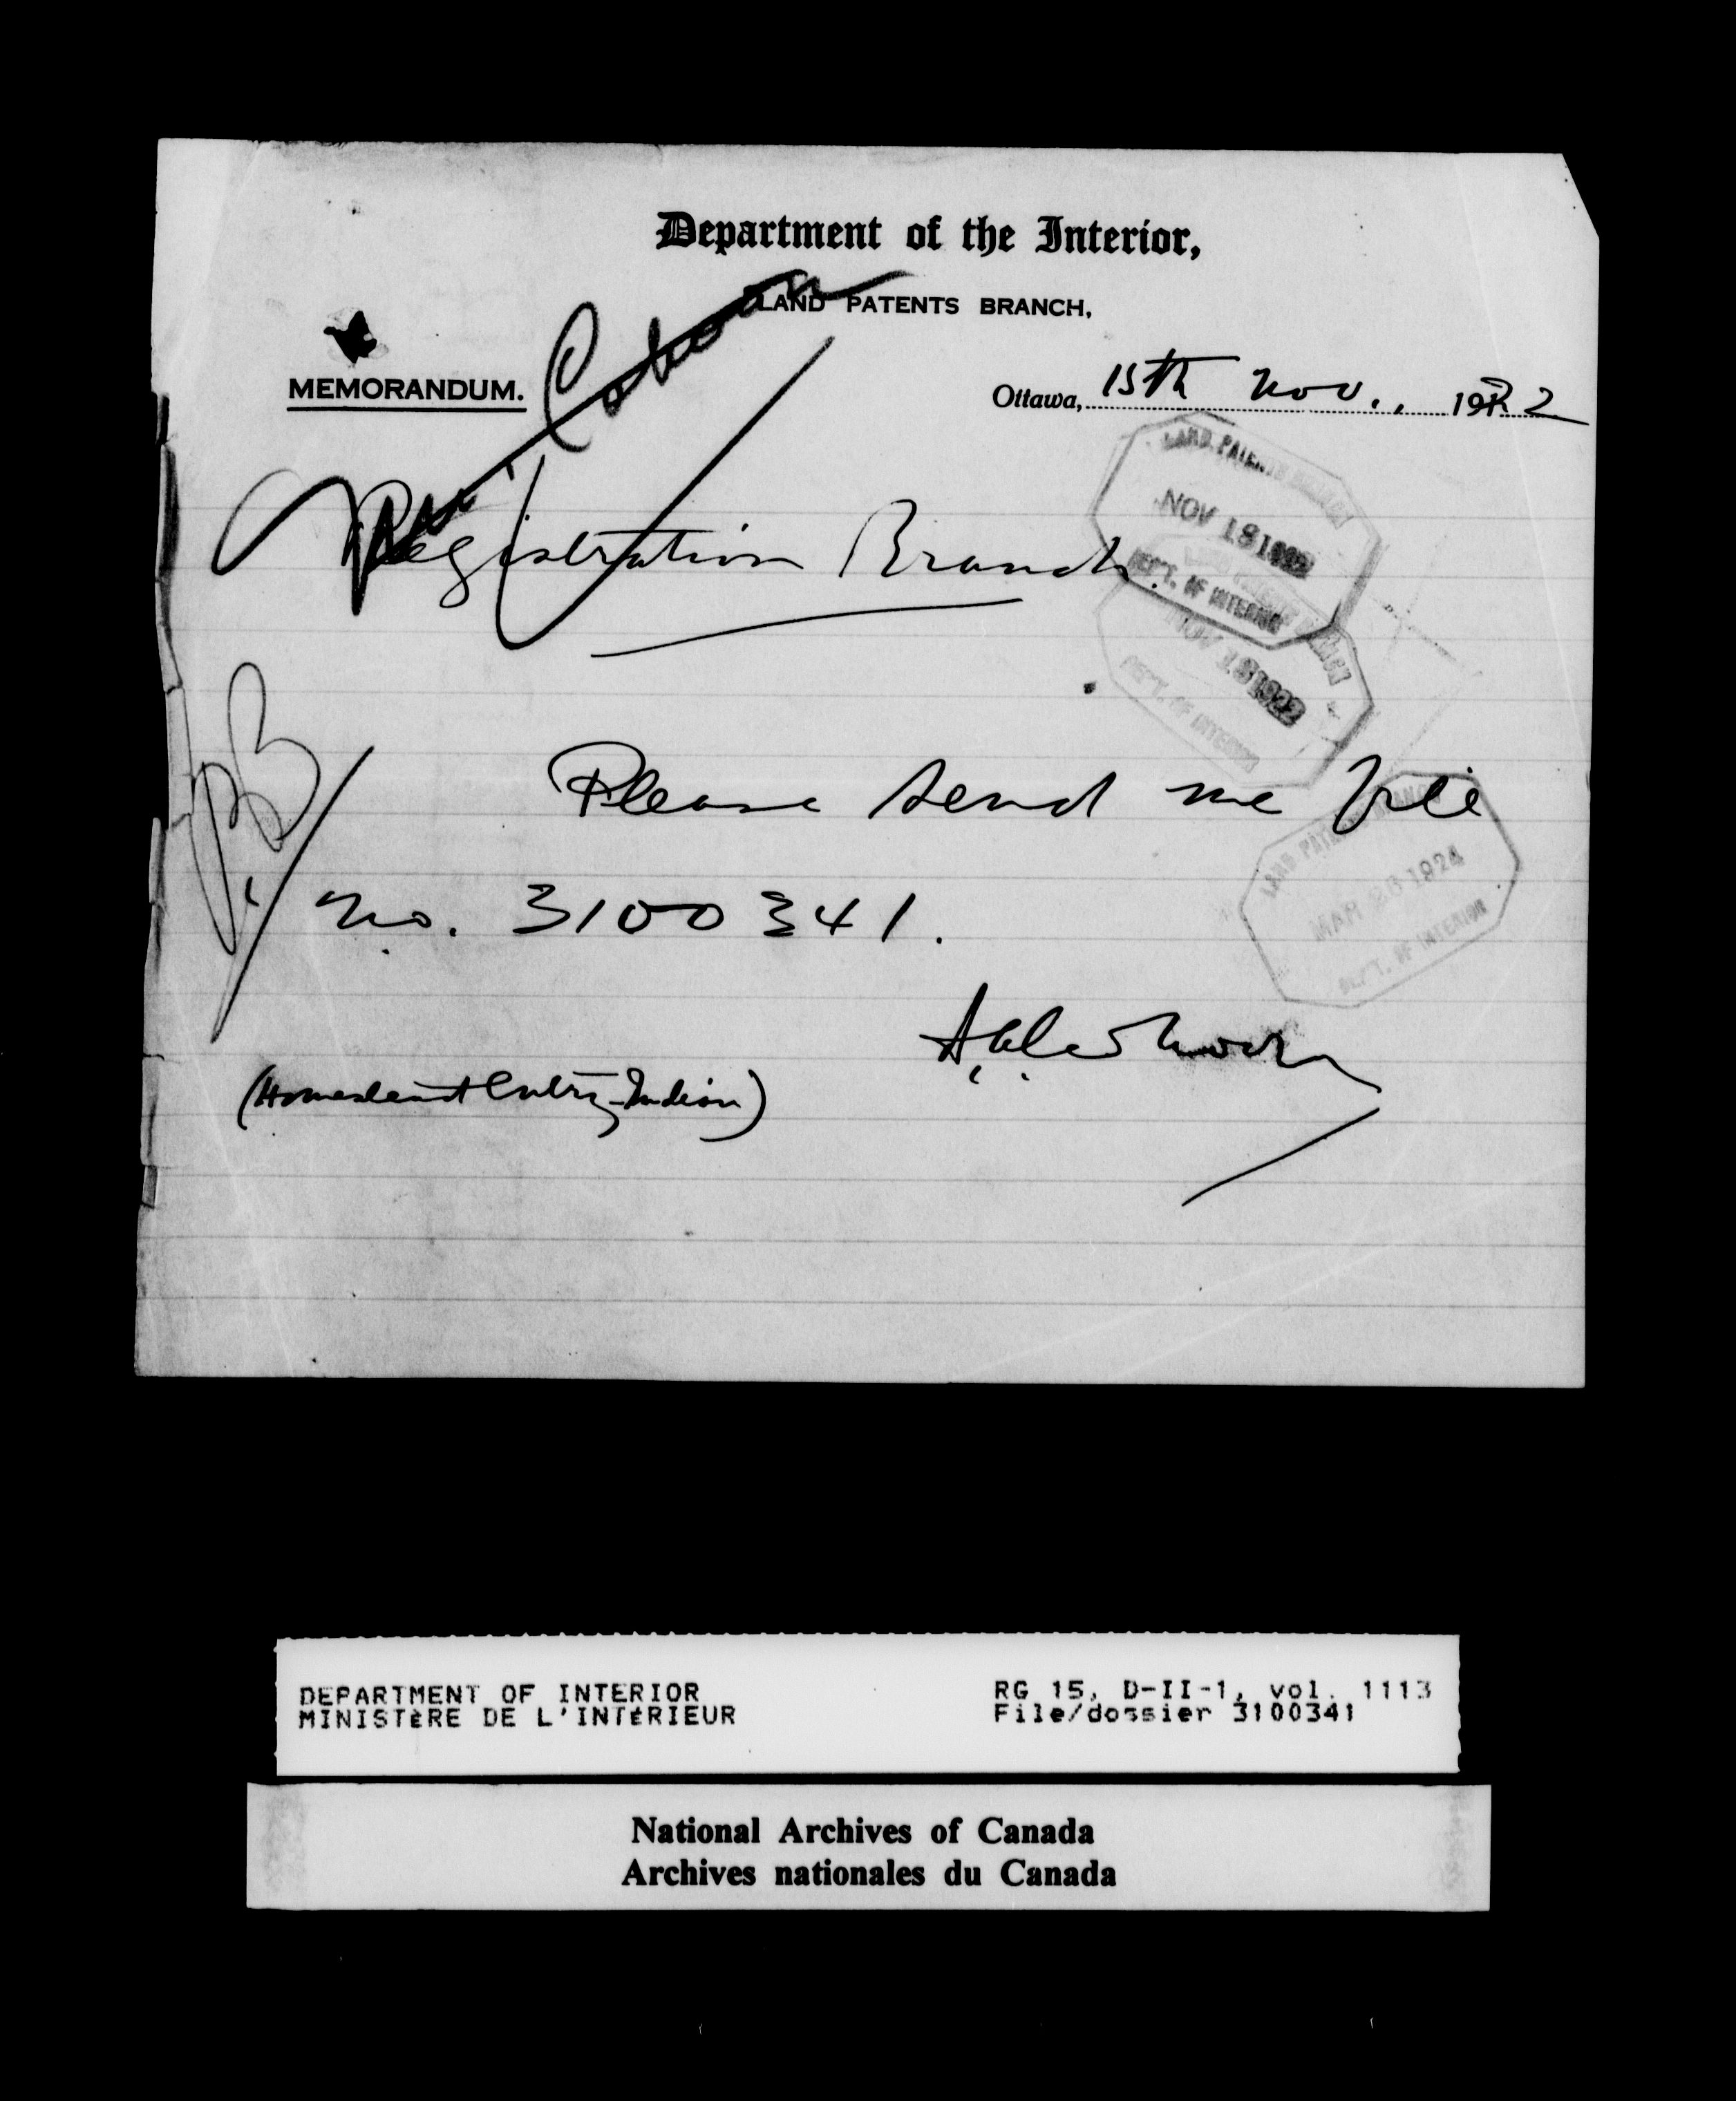 Department of the Interior,
LAND PATENTS BRANCH,
MEMORANDUM.
Ottawa, 15th Nov., 1922
Registration Branch.
LAND PATENTS BRANCH
NOV 18 1922
DEP'T. OF INTERIOR
NOV 18 1922
DEP'T. OF INTERIOR
Please send me file
No. 3100341.
LAND PATENTS BRANCH
MAR 26 1924
DEP'T. OF INTERIOR
(Homestead Entry-Indian)
DEPARTMENT OF INTERIOR
MINISTÈRE DE L'INTÉRIEUR
RG 15, D-II-1, vol. 1113
File/dossier 3100341
National Archives of Canada
Archives nationales du Canada